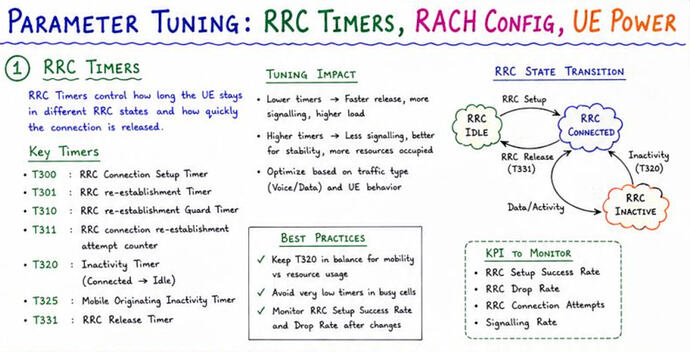 PARAMETER TUNING: RRC TIMERS, RACH CONFIG, UE POWER
1 RRC TIMERS
RRC Timers control how long the UE stays
in different RRC states and how quickly
the connection is released.
KEY TIMERS
• T300 : RRC Connection Setup Timer
• T301 : RRC re-establishment Timer
• T310 : RRC re-establishment Guard Timer
• T311 : RRC connection re-establishment
attempt counter
• T320 : Inactivity Timer
(Connected → Idle)
• T325 : Mobile Originating Inactivity Timer
• T331 : RRC Release Timer
TUNING IMPACT
• Lower timers → Faster release, more
signalling, higher load
• Higher timers → Less signalling, better
for stability, more resources occupied
• Optimize based on traffic type
(Voice/Data) and UE behavior
BEST PRACTICES
✓ Keep T320 in balance for mobility
vs resource usage
✓ Avoid very low timers in busy cells
✓ Monitor RRC Setup Success Rate
and Drop Rate after changes
RRC STATE TRANSITION
RRC Setup
RRC
IDLE
RRC
CONNECTED
RRC Release
(T331)
Inactivity
(T320)
Data/Activity
RRC
INACTIVE
KPI TO MONITOR
• RRC Setup Success Rate
• RRC Drop Rate
• RRC Connection Attempts
• Signalling Rate